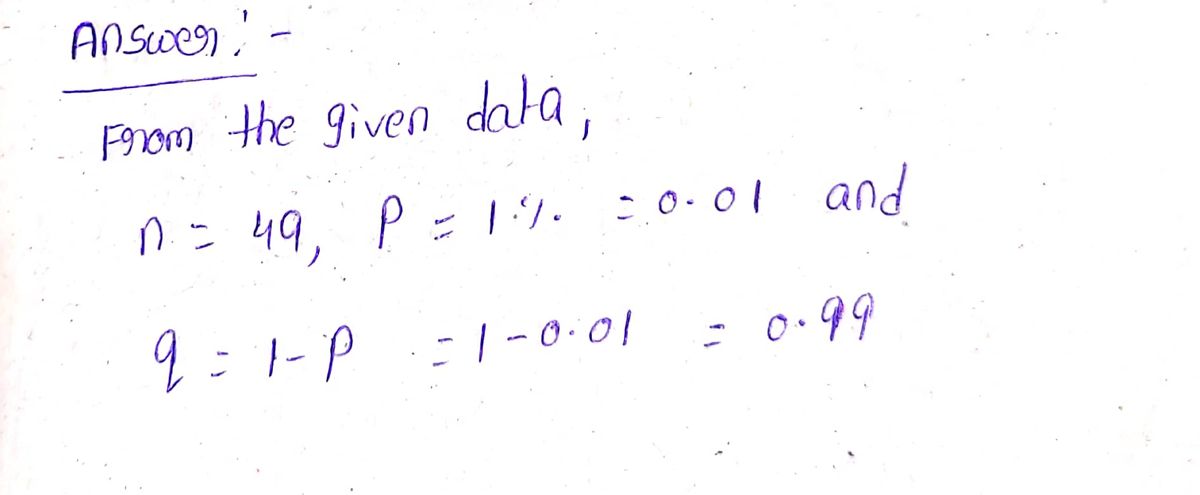 Answer:-
From the given data,
n = 49, P = 1% = 0.01 and
q = 1-P = 1-0.01 = 0.99